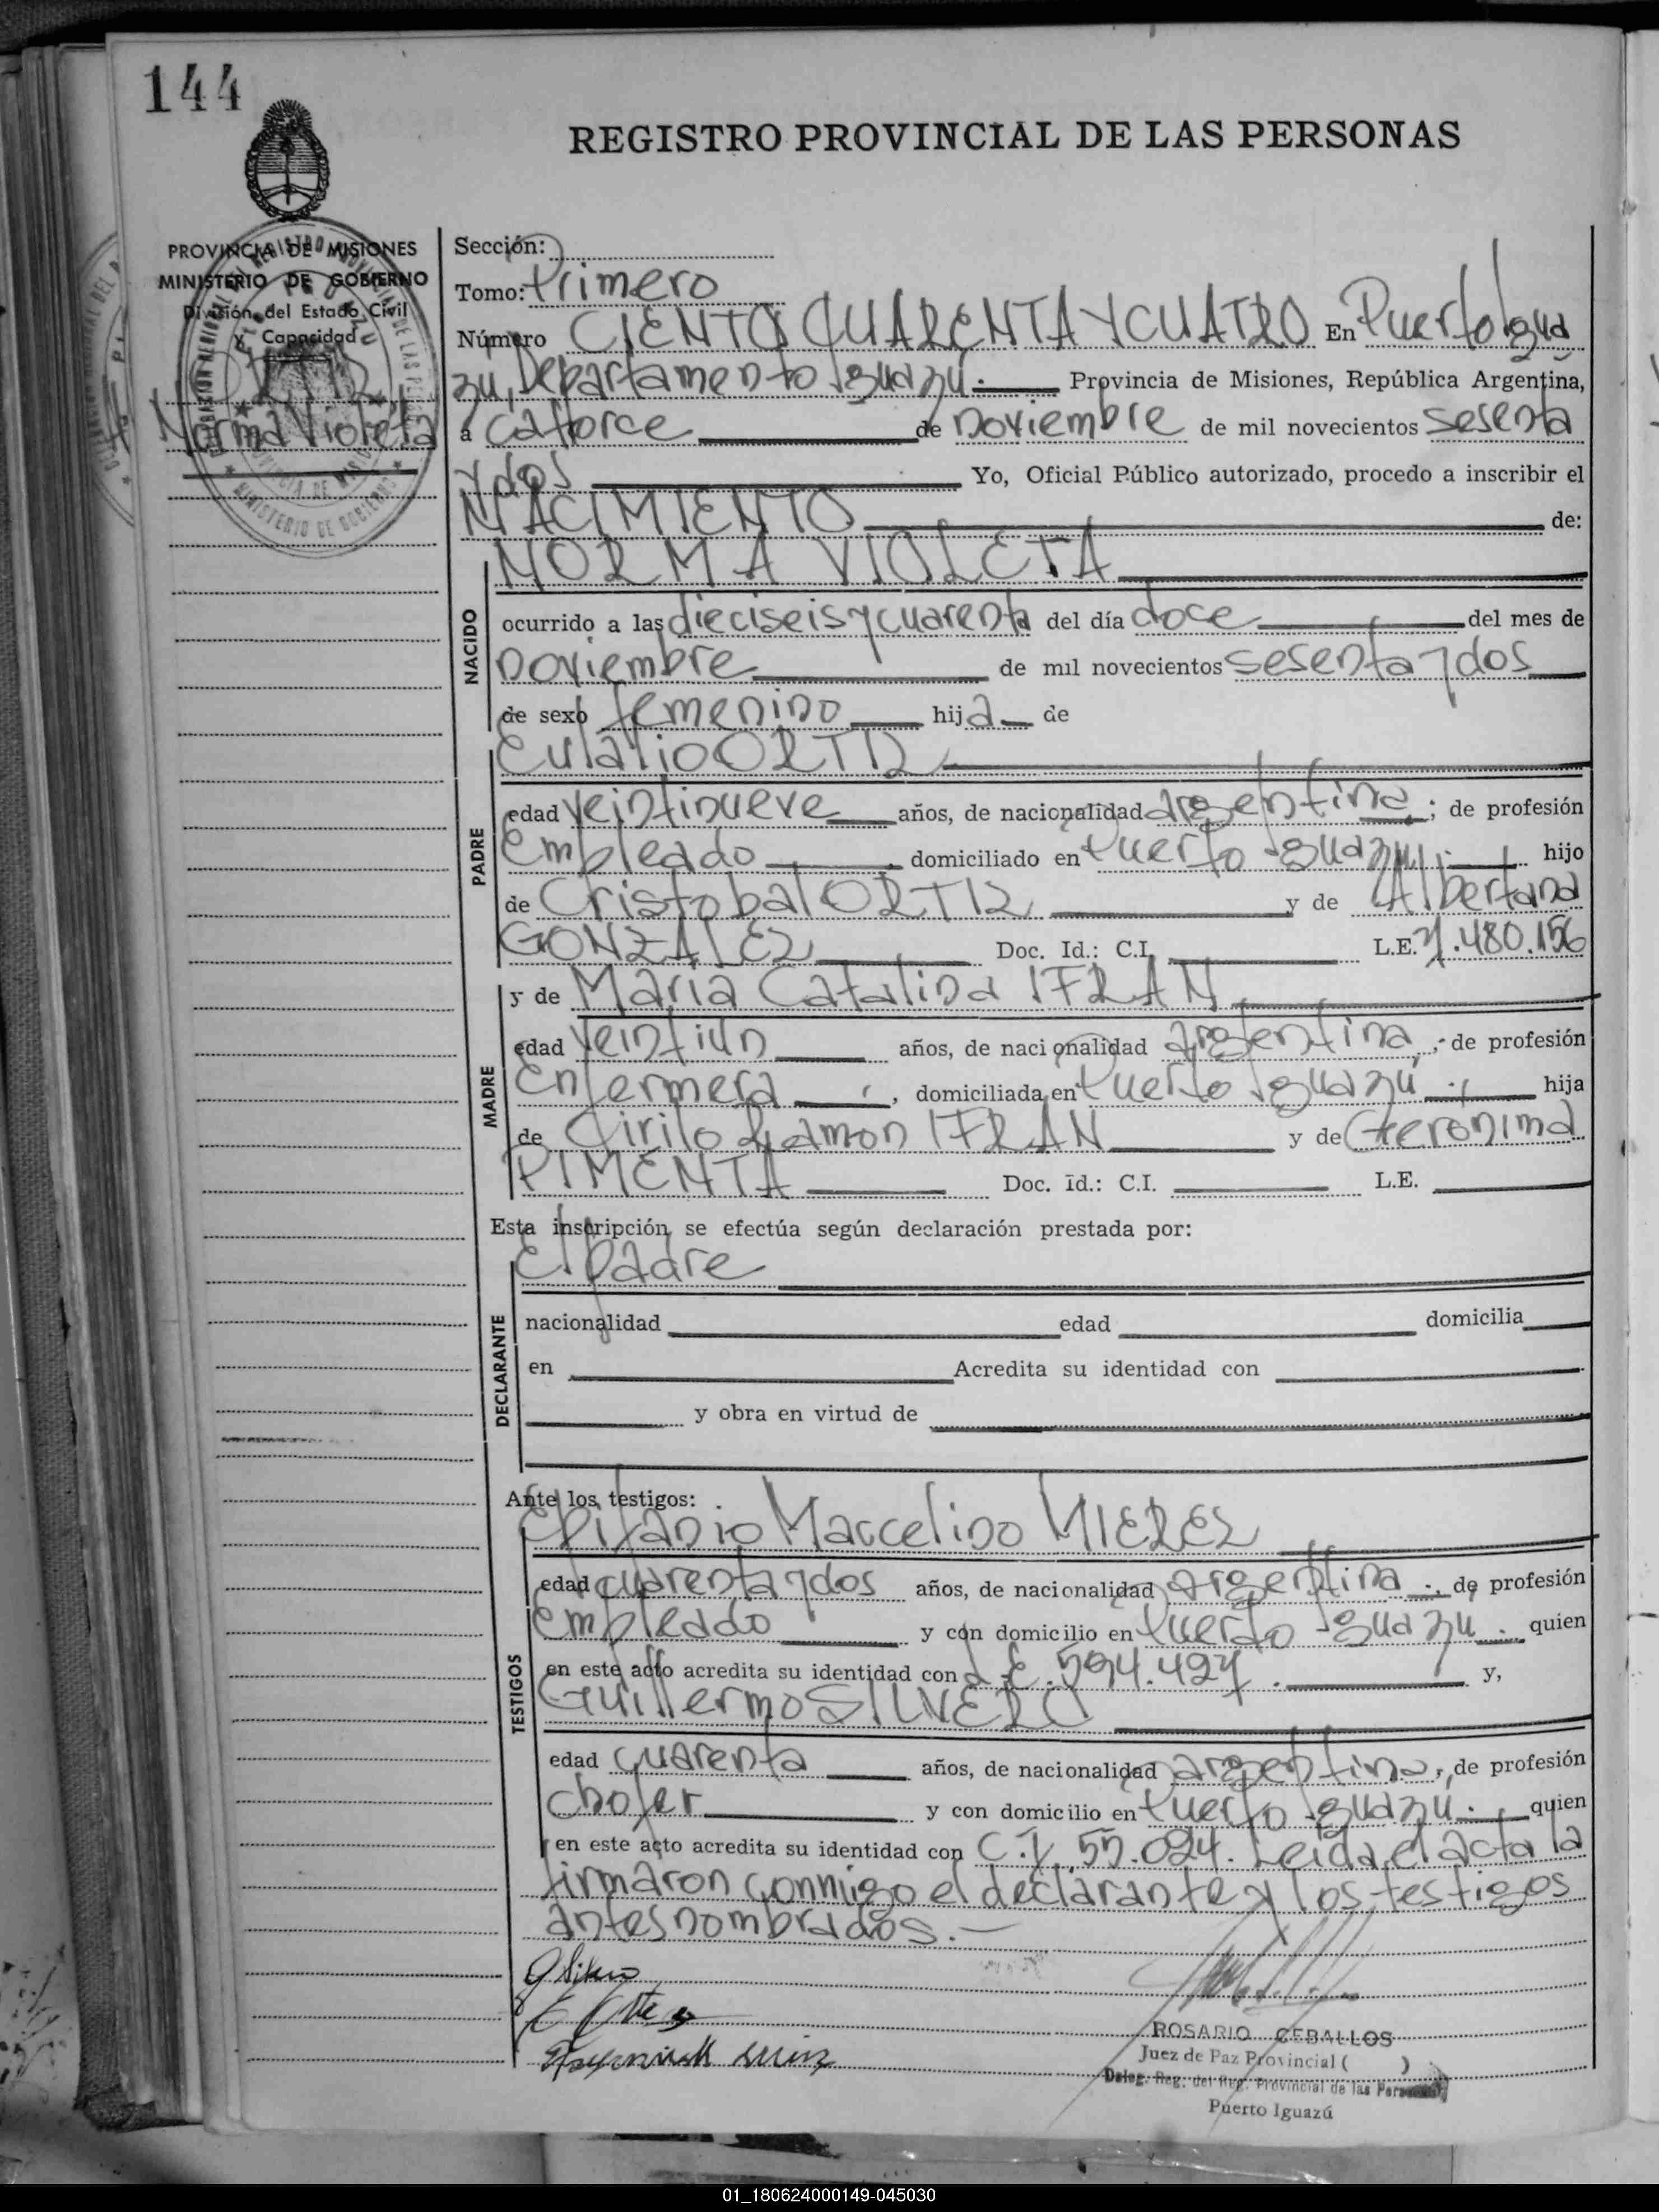 144
REGISTRO PROVINCIAL DE LAS PERSONAS
PROVINCIA DE MISIONES
MINISTERIO DE GOBIERNO
División del Estado Civil
y Capacidad
ORTIZ
Norma Violeta
Sección:
Tomo: Primero
Número CIENTO CUARENTA Y CUATRO En Puerto Igua
zu, Departamento Iguazú.- Provincia de Misiones, República Argentina,
a catorce de noviembre de mil novecientos sesenta
y dos Yo, Oficial Público autorizado, procedo a inscribir el
NACIMIENTO de:
NORMA VIOLETA
NACIDO
ocurrido a las dieciseis y cuarenta del día doce del mes de
noviembre de mil novecientos sesenta y dos
de sexo femenino hija de
Eulalio ORTIZ
PADRE
edad veintinueve años, de nacionalidad argentina; de profesión
empleado domiciliado en Puerto Iguazu, hijo
de Cristobal ORTIZ y de Albertana
GONZALEZ Doc. Id.: C.I. L.E. 7.480.156
y de Maria Catalina IFRAN
MADRE
edad veintiun años, de nacionalidad argentina, de profesión
enfermera, domiciliada en Puerto Iguazu hija
de Cirilo Ramon IFRAN y de Geronima
PIMENTA Doc. Id.: C.I. L.E.
Esta inscripción se efectúa según declaración prestada por:
El padre
DECLARANTE
nacionalidad edad domicilia
en Acredita su identidad con
y obra en virtud de
Ante los testigos:
Epifanio Marcelino MIERES
TESTIGOS
edad cuarenta y dos años, de nacionalidad argentina, de profesión
empleado y con domicilio en Puerto Iguazu quien
en este acto acredita su identidad con L.E. 594.427. y,
Guillermo SILVERO
edad cuarenta años, de nacionalidad argentino, de profesión
chofer y con domicilio en Puerto Iguazu. quien
en este acto acredita su identidad con C.I. 55.024. Leida el acta la
firmaron conmigo el declarante y los testigos
antes nombrados.-
ROSARIO CEBALLOS
Juez de Paz Provincial ( )
Deleg. Reg. del Reg. Provincial de las Personas
Puerto Iguazú
01_180624000149-045030